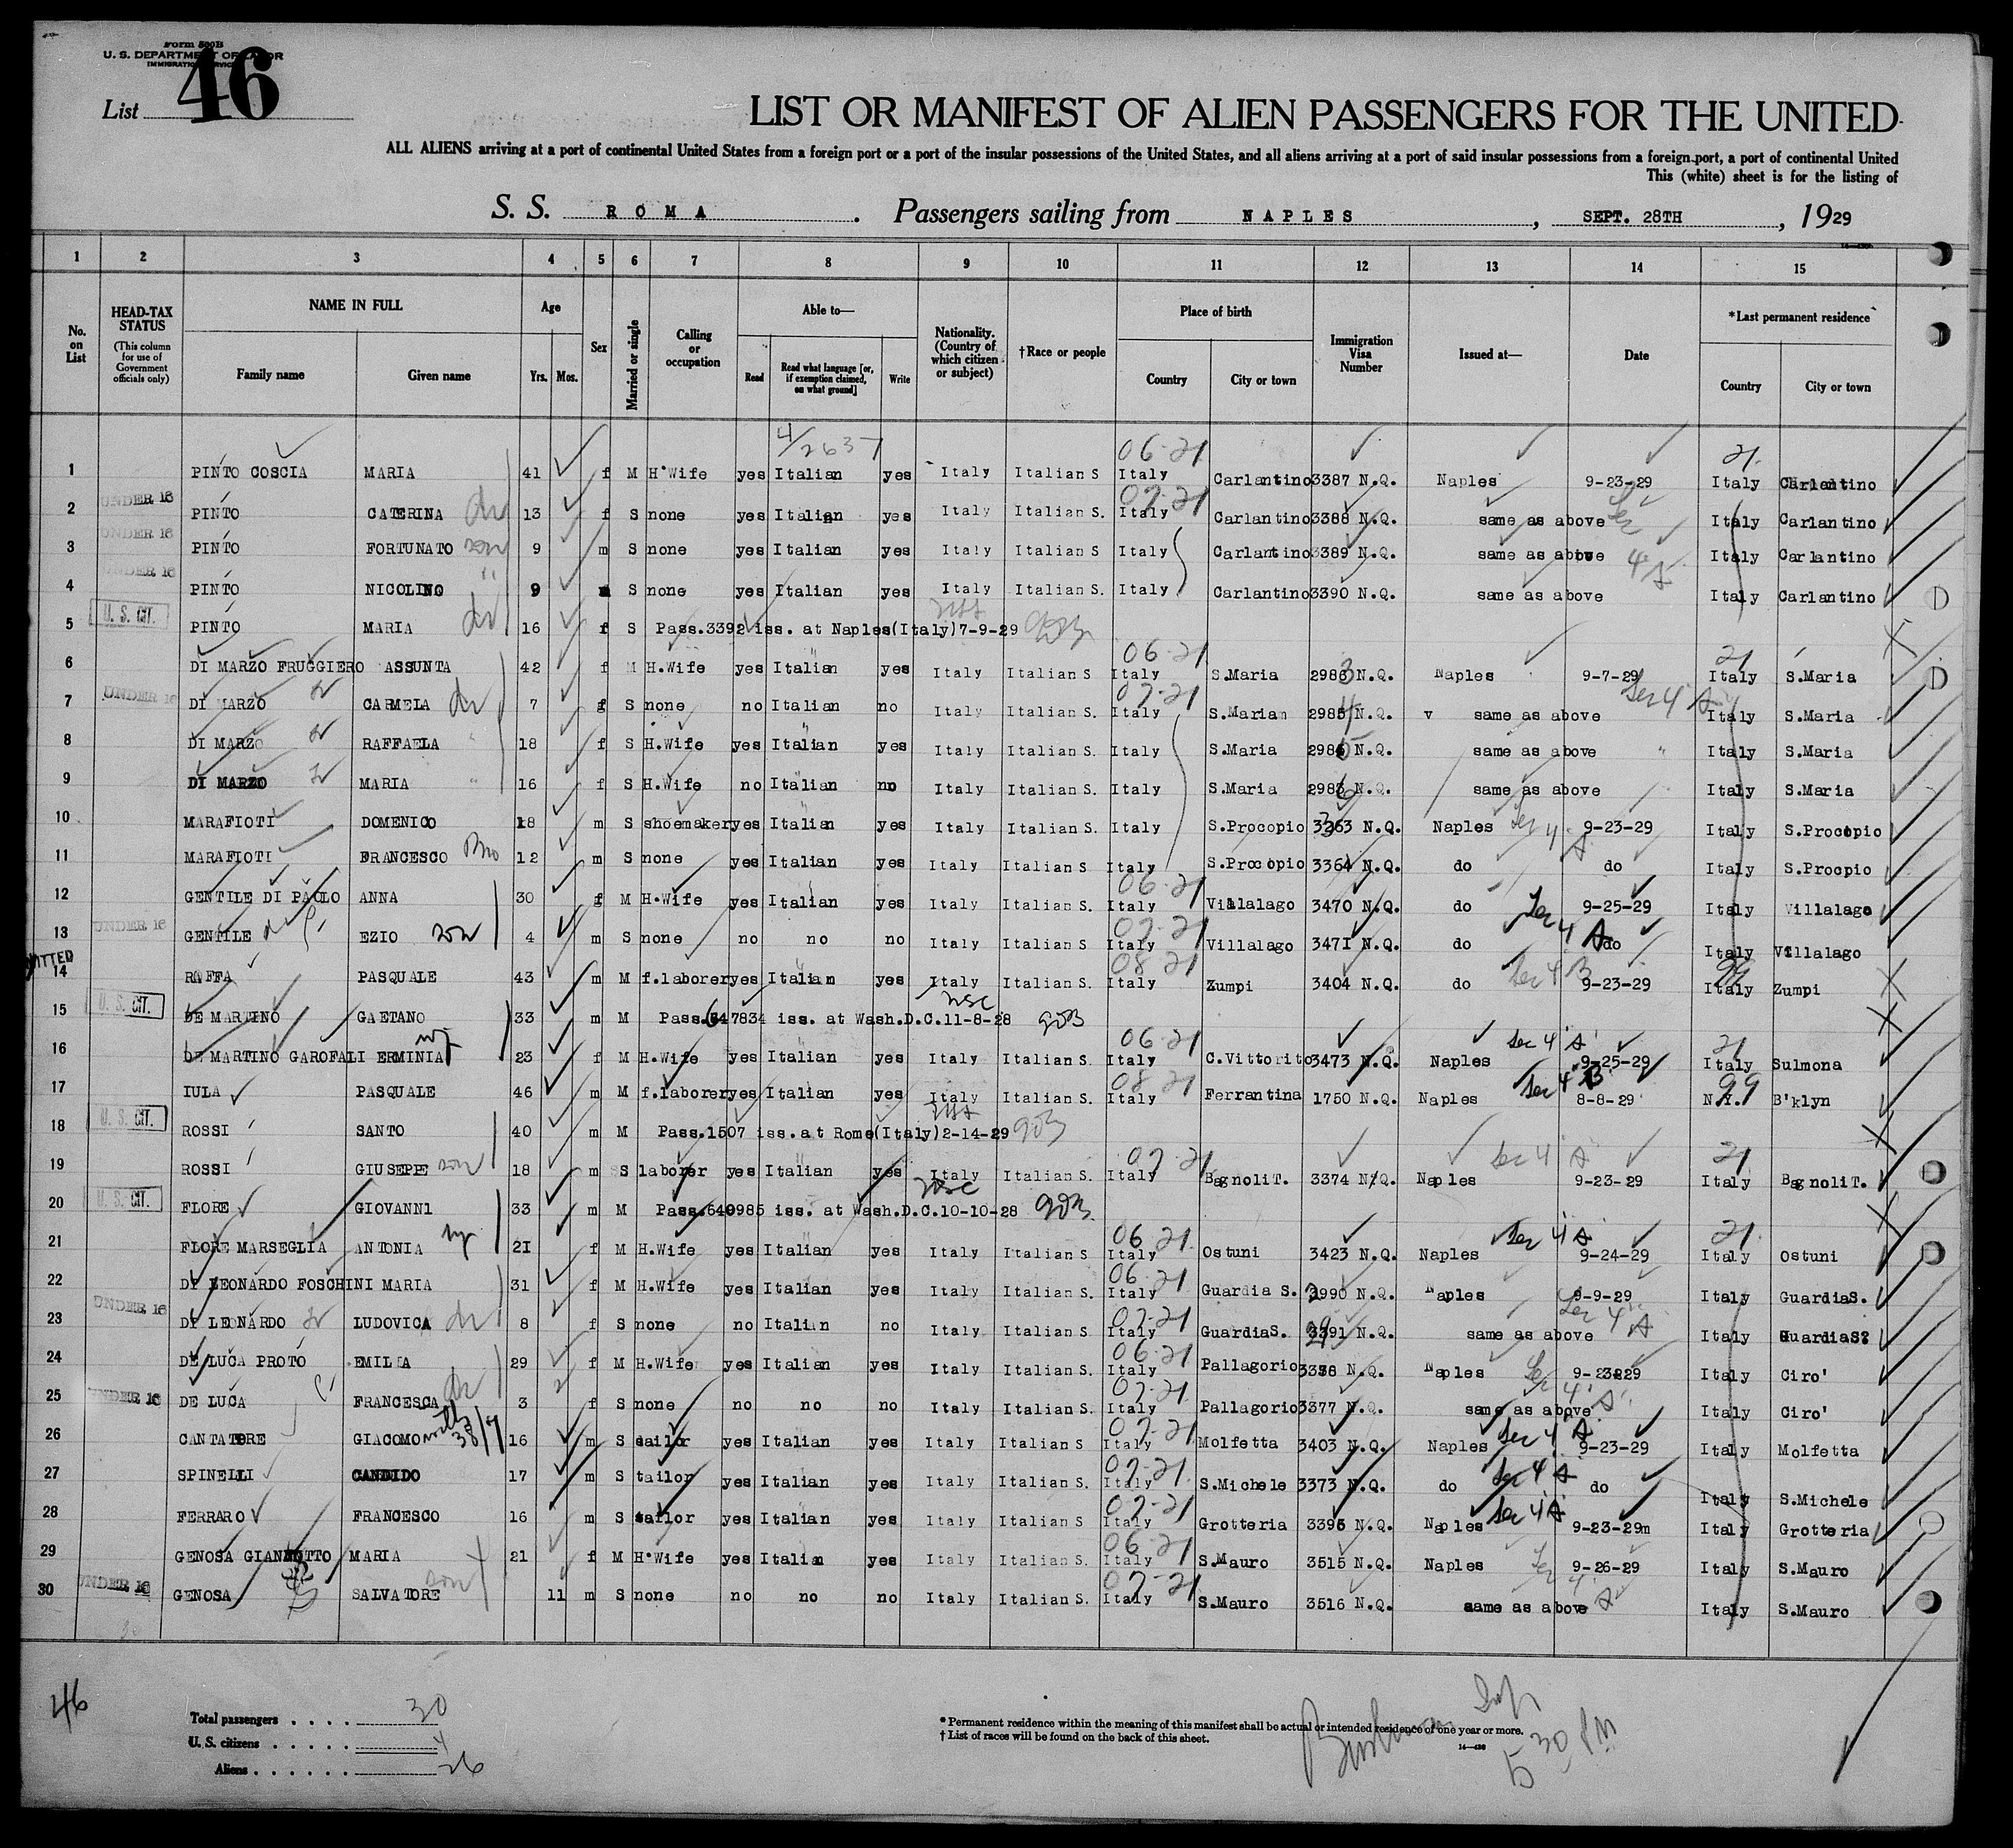 Form 500B
U. S. DEPARTMENT OF LABOR
IMMIGRATION SERVICE
List 46
LIST OR MANIFEST OF ALIEN PASSENGERS FOR THE UNITED
ALL ALIENS arriving at a port of continental United States from a foreign port or a port of the insular possessions of the United States, and all aliens arriving at a port of said insular possessions from a foreign port, a port of continental United
This (white) sheet is for the listing of
S. S. ROMA. Passengers sailing from NAPLES, SEPT. 28TH, 1929
1 2 3 4 5 6 7 8 9 10 11 12 13 14 15
No. on List
HEAD-TAX STATUS (This column for use of Government officials only)
NAME IN FULL Family name Given name
Age Yrs. Mos.
Sex
Married or single
Calling or occupation
Able to— Read Read what language [or, if exemption claimed, on what ground] Write
Nationality. (Country of which citizen or subject)
†Race or people
Place of birth Country City or town
Immigration Visa Number
Issued at—
Date
*Last permanent residence Country City or town
4/2637 06-21 21
1 PINTO COSCIA MARIA 41 f M H'Wife yes Italian yes Italy Italian S Italy Carlantino 3387 N.Q. Naples 9-23-29 Italy Carlantino
2 UNDER 16 PINTO CATERINA 13 f S none yes Italian yes Italy Italian S. Italy Carlantino 3388 N.Q. same as above Italy Carlantino
3 UNDER 16 PINTO FORTUNATO son 9 m S none yes Italian yes Italy Italian S Italy Carlantino 3389 N.Q. same as above Italy Carlantino
4 UNDER 16 PINTO NICOLINO " 9 m S none yes Italian yes Italy Italian S. Italy Carlantino 3390 N.Q. same as above Italy Carlantino
5 U. S. CIT. PINTO MARIA 16 f S Pass.3392 iss. at Naples(Italy)7-9-29
6 DI MARZO FRUGGIERO ASSUNTA 42 f M H.Wife yes Italian yes Italy Italian S Italy 06-21 S.Maria 2983 N.Q. Naples 9-7-29 Italy 21 S.Maria
7 UNDER 16 DI MARZO CARMELA 7 f S none no Italian no Italy Italian S. Italy 07-21 S.Maria 2984 N.Q. v same as above Sec 4 A Italy S.Maria
8 DI MARZO RAFFAELA 18 f S H.Wife yes Italian yes Italy Italian S. Italy S.Maria 2985 N.Q. same as above " Italy S.Maria
9 DI MARZO MARIA 16 f S H.Wife no Italian no Italy Italian S. Italy S.Maria 2986 N.Q. same as above Italy S.Maria
10 MARAFIOTI DOMENICO 18 m S shoemaker yes Italian yes Italy Italian S. Italy S.Procopio 3363 N.Q. Naples 9-23-29 Italy S.Procopio
11 MARAFIOTI FRANCESCO Bro 12 m S none yes Italian yes Italy Italian S Italy S.Procopio 3364 N.Q. do do Italy S.Procpio
12 GENTILE DI PAOLO ANNA 30 f M H.Wife yes Italian yes Italy Italian S. Italy 06-21 Villalago 3470 N.Q. do 9-25-29 Italy Villalago
13 UNDER 16 GENTILE EZIO son 4 m S none no no no Italy Italian S Italy 07-21 Villalago 3471 N.Q. do Sec 4 A do Italy Villalago
14 RAFFA PASQUALE 43 m M f.laborer yes Italian yes Italy Italian S. Italy 08 21 Zumpi 3404 N.Q. do Sec 4 B 9-23-29 Italy Zumpi
15 U. S. CIT. DE MARTINO GAETANO 33 m M Pass.647834 iss. at Wash.D.C.11-8-28
16 DE MARTINO GAROFALI ERMINIA wf 23 f M H.Wife yes Italian yes Italy Italian S. Italy 06-21 C.Vittorito 3473 N.Q. Naples Sec 4 A 9-25-29 Italy 21 Sulmona
17 IULA PASQUALE 46 m M f.laborer yes Italian yes Italy Italian S. Italy 08 21 Ferrantina 1750 N.Q. Naples Sec 4 B 8-8-29 N.Y. 99 B'klyn
18 U. S. CIT. ROSSI SANTO 40 m M Pass.1507 iss.at Rome(Italy)2-14-29
19 ROSSI GIUSEPPE son 18 m S laborer yes Italian yes Italy Italian S. Italy 07-21 BagnoliT. 3374 N.Q. Naples Sec 4 A 9-23-29 Italy 21 BagnoliT.
20 U. S. CIT. FLORE GIOVANNI 33 m M Pass.640985 iss. at Wash.D.C.10-10-28
21 FLORE MARSEGLIA ANTONIA wf 21 f M H.Wife yes Italian yes Italy Italian S Italy 06 21 Ostuni 3423 N.Q. Naples Sec 4 A 9-24-29 Italy 21 Ostuni
22 DE LEONARDO FOSCHINI MARIA 31 f M H.Wife yes Italian yes Italy Italian S. Italy 06 21 Guardia S. 2990 N.Q. Naples 9-9-29 Italy GuardiaS.
23 UNDER 16 DE LEONARDO LUDOVICA 8 f S none no Italian no Italy Italian S. Italy 07-21 GuardiaS. 2991 N.Q. same as above Sec 4 A Italy GuardiaS.
24 DE LUCA PROTO EMILIA 29 f M H.Wife yes Italian yes Italy Italian S. Italy 06-21 Pallagorio N.Q. Naples 9-23-29 Italy Ciro'
25 UNDER 16 DE LUCA FRANCESCA 3 f S none no no no Italy Italian S. Italy 07-21 Pallagorio 3377 N.Q. same as above Italy Ciro'
26 CANTATORE GIACOMO 38/7 16 m S tailor yes Italian yes Italy Italian S Italy 07-21 Molfetta 3403 N.Q. Naples Sec 4 A 9-23-29 Italy Molfetta
27 SPINELLI CANDIDO 17 m S tailor yes Italian yes Italy Italian S. Italy 07-21 S.Michele 3373 N.Q. do Sec 4 A do Italy S.Michele
28 FERRARO FRANCESCO 16 m S tailor yes Italian yes Italy Italian S Italy 07-21 Grotteria 3395 N.Q. Naples Sec 4 A 9-23-29m Italy Grotteria
29 GENOSA GIANNOTTO MARIA 21 f M H.Wife yes Italian yes Italy Italian S. Italy 06-21 S.Mauro 3515 N.Q. Naples 9-26-29 Italy S.Mauro
30 UNDER 16 GENOSA SALVATORE son 11 m S none no no no Italy Italian S. Italy 07-21 S.Mauro 3516 N.Q. same as above Italy S.Mauro
46
Total passengers . . . . 30
U. S. citizens . . . . . 4
Aliens . . . . . . 26
* Permanent residence within the meaning of this manifest shall be actual or intended residence of one year or more.
† List of races will be found on the back of this sheet.
14—430
5 30 PM